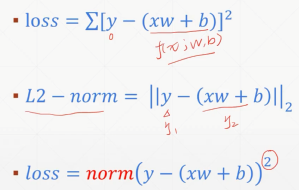 ▪ loss = Σ[y − (xw + b)]²
0
f(x; w, b)
▪ L2 − norm = ||y − (xw + b)||₂
y₁ y₂
▪ loss = norm(y − (xw + b))²